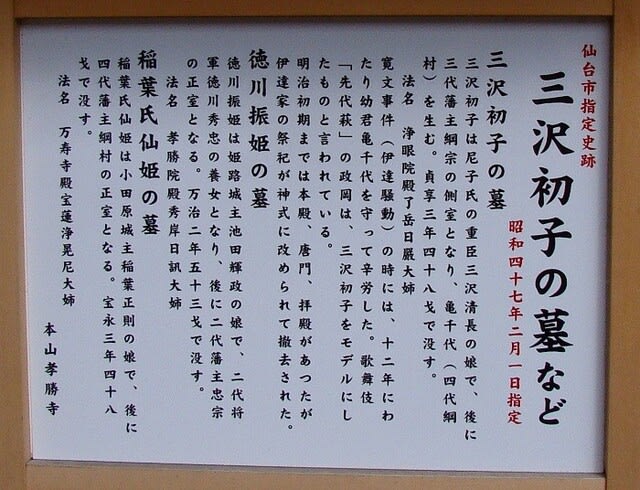 仙台市指定史跡
三沢初子の墓など
昭和四十七年二月一日指定
三沢初子の墓
三沢初子は尼子氏の重臣三沢清長の娘で、後に
三代藩主綱宗の側室となり、亀千代(四代綱
村)を生む。貞享三年四十八戈で没す。
法名 浄眼院殿了岳日厳大姉
寛文事件(伊達騒動)の時には、十二年にわ
たり幼君亀千代を守って辛労した。歌舞伎
「先代萩」の政岡は、三沢初子をモデルにし
たものと言われている。
明治初期までは本殿、唐門、拝殿があつたが
伊達家の祭祀が神式に改められて撤去された。
徳川振姫の墓
徳川振姫は姫路城主池田輝政の娘で、二代将
軍徳川秀忠の養女となり、後に二代藩主忠宗
の正室となる。万治二年五十三戈で没す。
法名 孝勝院殿秀岸日訊大姉
稲葉氏仙姫の墓
稲葉氏仙姫は小田原城主稲葉正則の娘で、後に
四代藩主綱村の正室となる。宝永三年四十八
戈で没す。
法名 万寿寺殿宝蓮浄晃尼大姉
本山孝勝寺